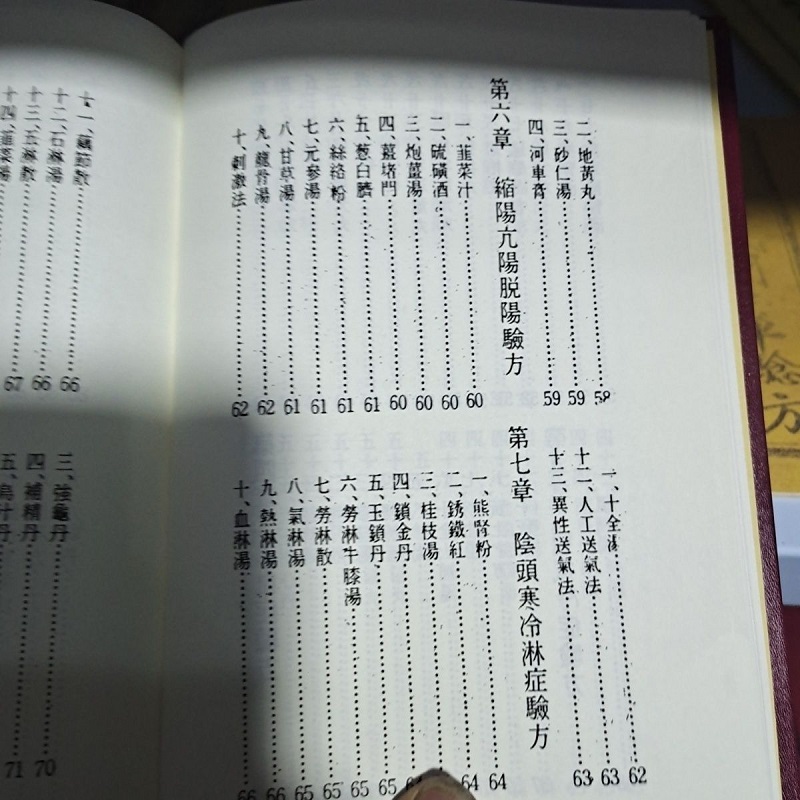 二、地黃丸……58
三、砂仁湯……59
四、河車膏……59
第六章 縮陽亢陽脫陽驗方
一、韭菜汁……60
二、硫磺酒……60
三、炮薑湯……60
四、薑堵門……60
五、葱白臍……61
六、絲絡粉……61
七、元參湯……61
八、甘草湯……61
九、龍骨湯……62
十、刺激法……62
一、十全湯……62
十二、人工送氣法……63
十三、異性送氣法……63
第七章 陰頭寒冷淋症驗方
一、熊腎粉……64
二、銹鐵紅……64
三、桂枝湯……
四、鎖金丹……64
五、玉鎖丹……65
六、勞淋牛膝湯……65
七、勞淋散……65
八、氣淋湯……65
九、熱淋湯……66
十、血淋湯……66
十一、藕節散……66
十二、石淋湯……66
十三、玉淋散……67
十四、韭菜湯
三、強龜丹……70
四、補精丹……71
五、烏汁丹
方